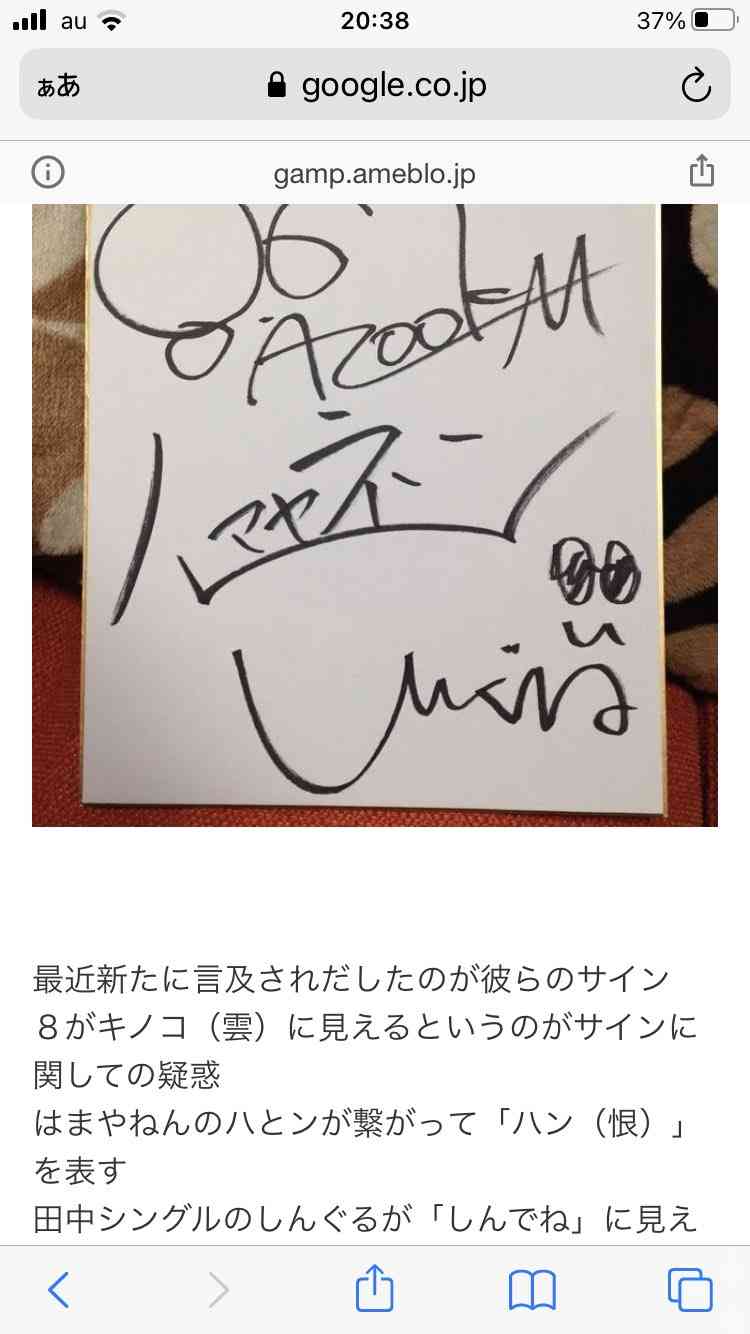 au
20:38
37%
ぁあ
google.co.jp
gamp.ameblo.jp
AzooKM
ハマヤネン
最近新たに言及されだしたのが彼らのサイン
８がキノコ（雲）に見えるというのがサインに
関しての疑惑
はまやねんのハとンが繋がって「ハン（恨）」
を表す
田中シングルのしんぐるが「しんでね」に見え